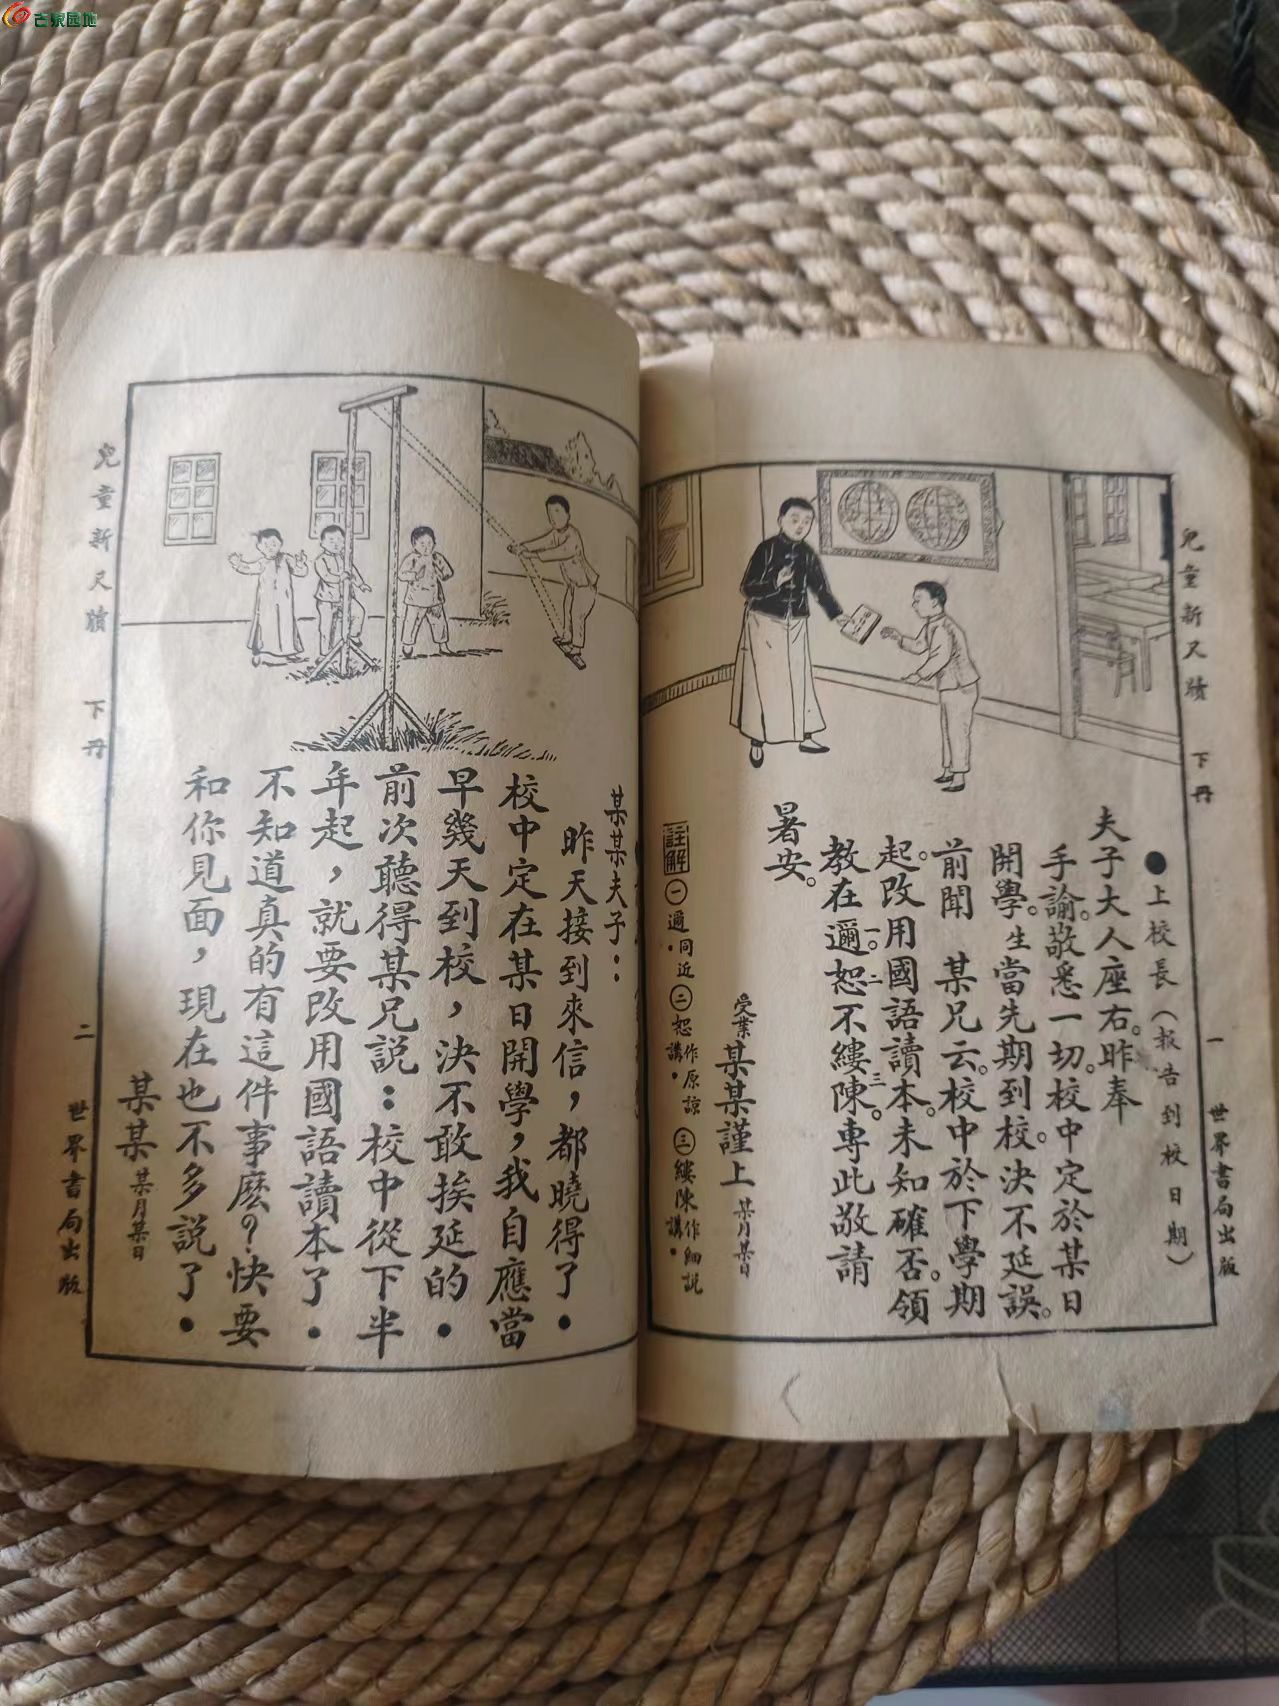 古泉园地
兒童新尺牘 下冊 一 世界書局出版
●上校長(報告到校日期)
夫子大人座右。昨奉
手諭。敬悉一切。校中定於某日
開學。生當先期到校。決不延誤。
前聞 某兄云。校中於下學期
起。改用國語讀本。未知確否。領
教在邇。恕不縷陳。專此敬請
暑安。
受業某某謹上 某月某日
註解 ㊀邇同近。㊁恕作原諒講。㊂縷陳作細說講。
某某夫子:
昨天接到來信,都曉得了.
校中定在某日開學,我自應當
早幾天到校,決不敢挨延的.
前次聽得某兄説:校中從下半
年起,就要改用國語讀本了.
不知道真的有這件事麽?快要
和你見面,現在也不多説了.
某某 某月某日
兒童新尺牘 下冊 二 世界書局出版